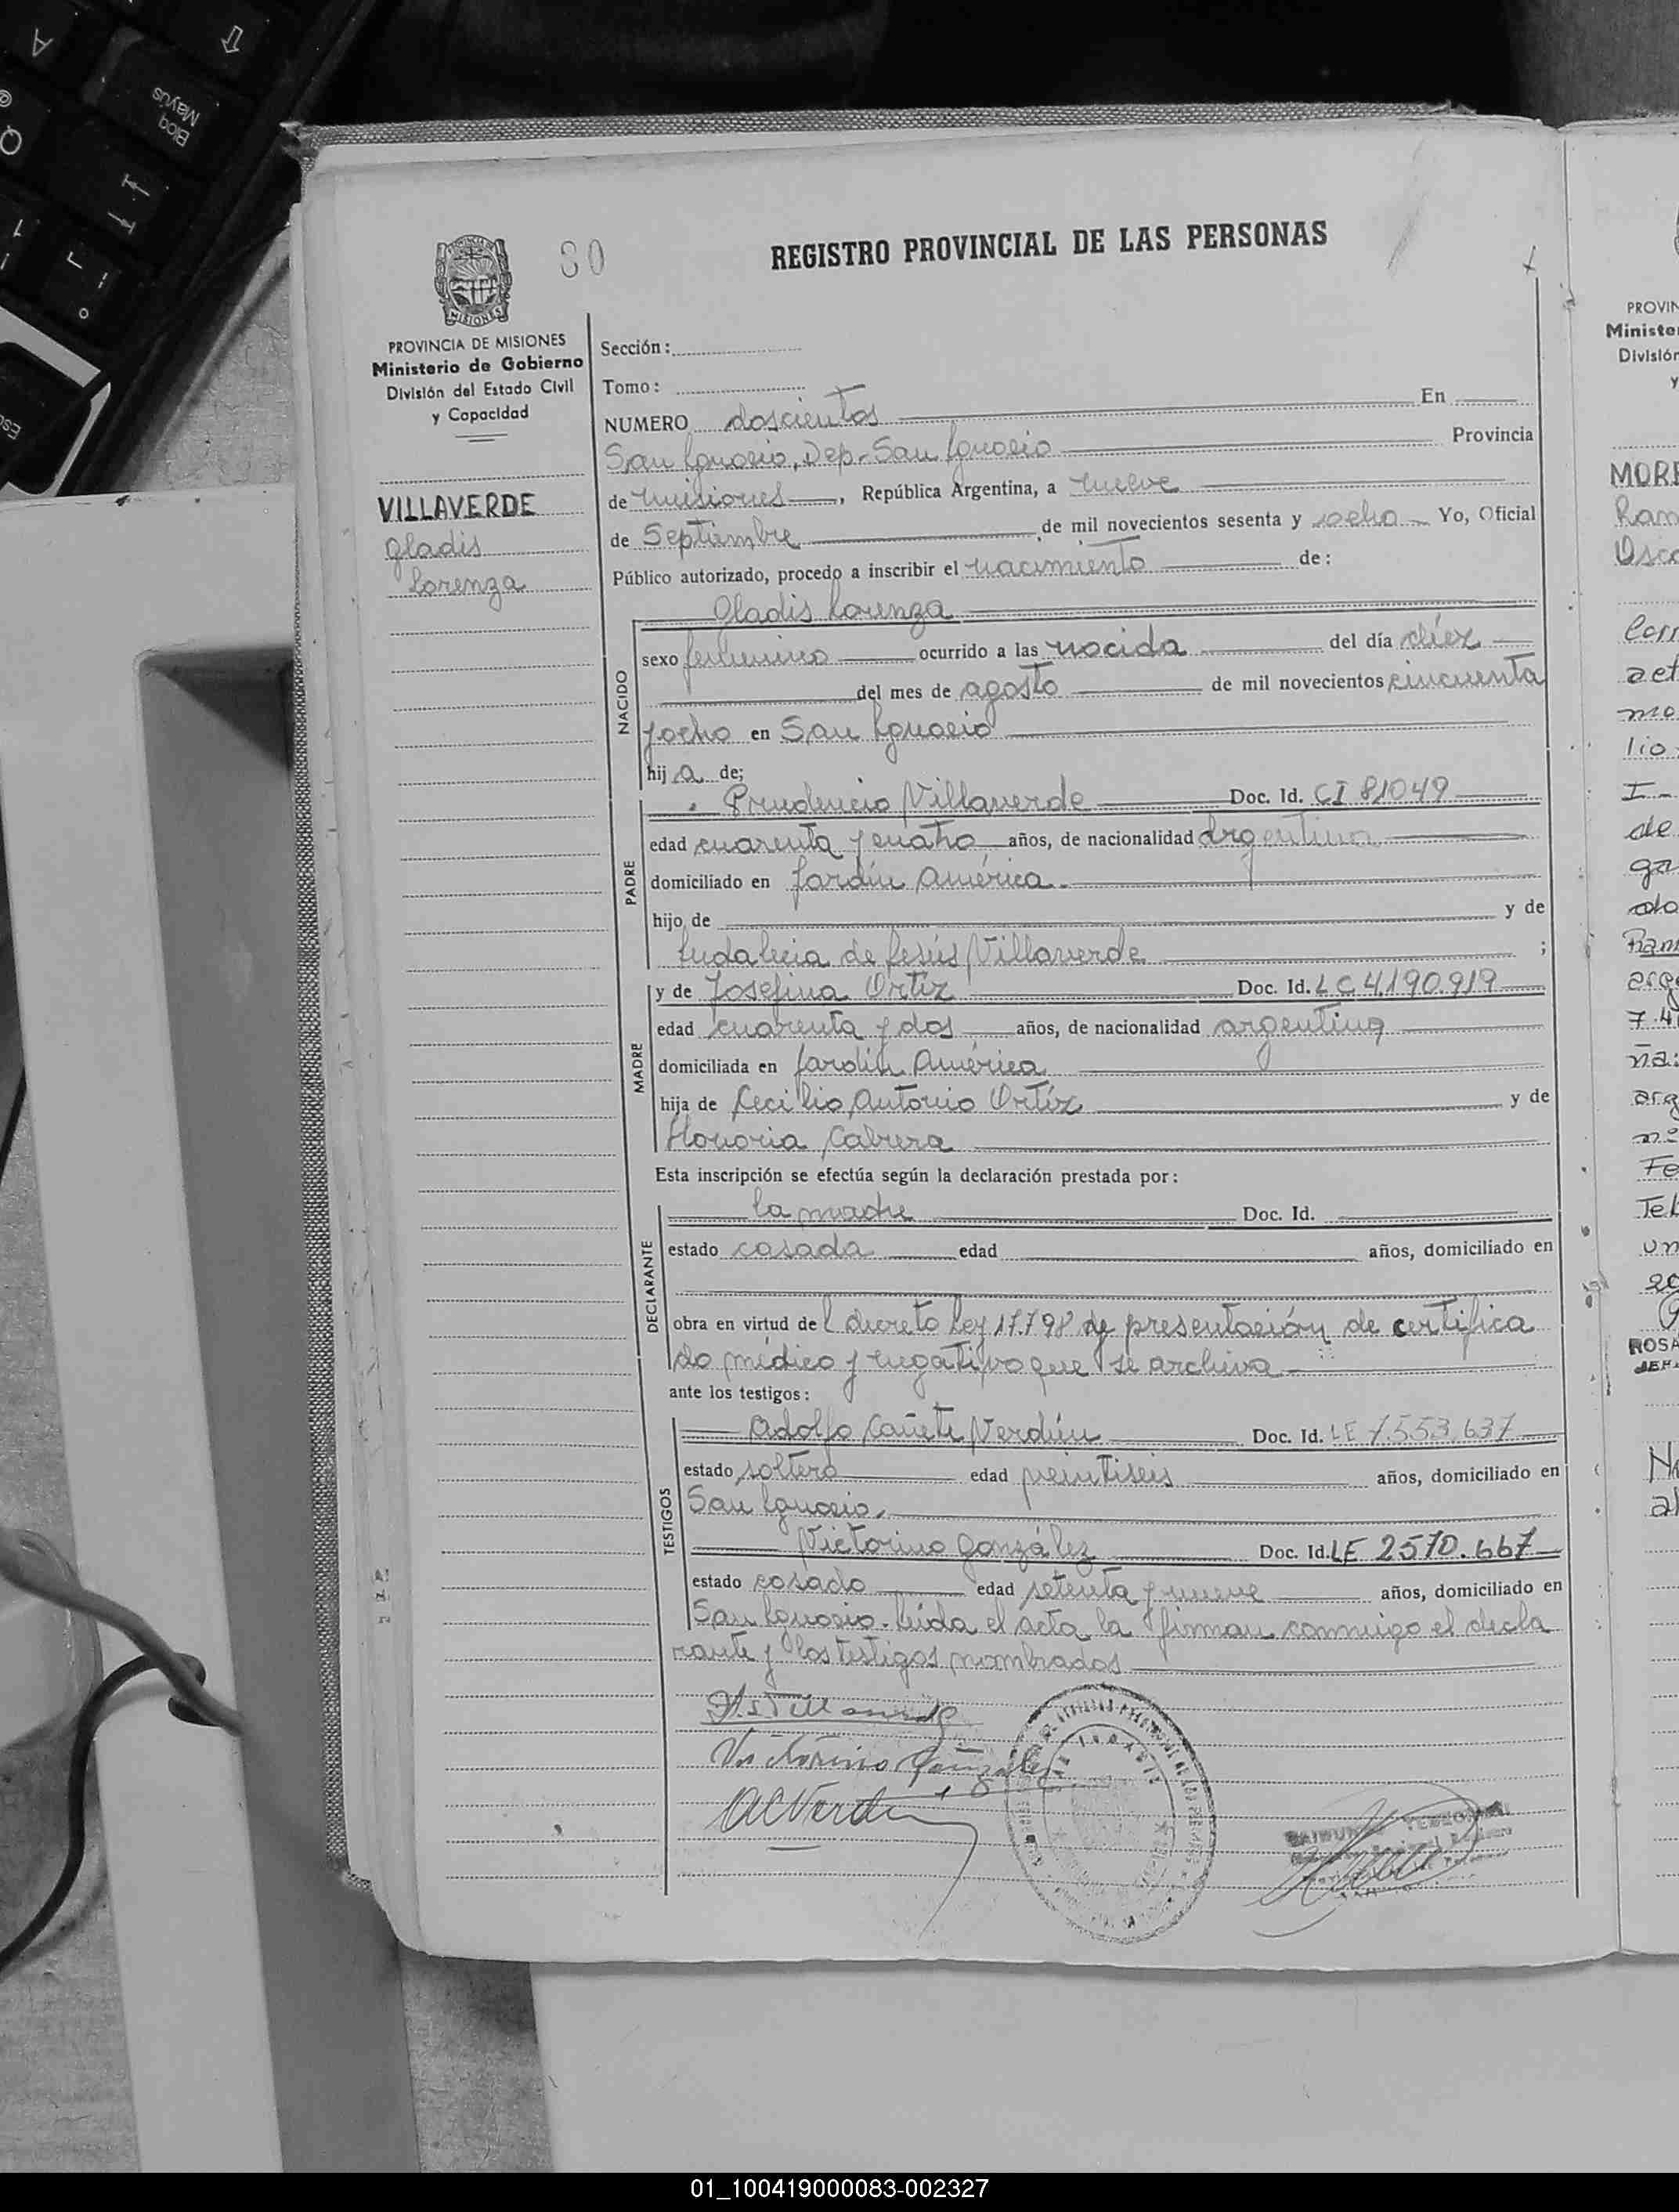 80
REGISTRO PROVINCIAL DE LAS PERSONAS
PROVINCIA DE MISIONES
Ministerio de Gobierno
División del Estado Civil
y Capacidad
VILLAVERDE
Gladis
Lorenza
Sección:
Tomo:
NUMERO doscientos En
San Ignacio, Dep. San Ignacio Provincia
de Misiones, República Argentina, a nueve
de Septiembre de mil novecientos sesenta y ocho Yo, Oficial
Público autorizado, procedo a inscribir el nacimiento de:
Gladis Lorenza
NACIDO
sexo femenino ocurrido a las nacida del día diez
del mes de agosto de mil novecientos cincuenta
y ocho en San Ignacio
hija de;
PADRE
Prudencio Villaverde Doc. Id. CI 81049
edad cuarenta y cuatro años, de nacionalidad argentina
domiciliado en Jardín América.
hijo de y de
Indalecia de Jesús Villaverde ;
MADRE
y de Josefina Ortiz Doc. Id. LC 4.190.919
edad cuarenta y dos años, de nacionalidad argentina
domiciliada en Jardín América
hija de Cecilio Antonio Ortíz y de
Honoria Cabrera
Esta inscripción se efectúa según la declaración prestada por:
DECLARANTE
la madre Doc. Id.
estado casada edad años, domiciliado en
obra en virtud del decreto ley 17.798 de presentación de certifica
do médico y negativo que se archiva
ante los testigos:
TESTIGOS
Adolfo Cañete Verdún Doc. Id. LE 7.553.637
estado soltero edad veintiseis años, domiciliado en
San Ignacio.
Victorino González Doc. Id. LE 2570.667
estado casado edad setenta y nueve años, domiciliado en
San Ignacio. Leída el acta la firman conmigo el decla
rante y los testigos nombrados
Victorino González
ACVerdun
PROVIN
Ministe
División
y
MORE
Ram
Osca
ROSA
01_100419000083-002327